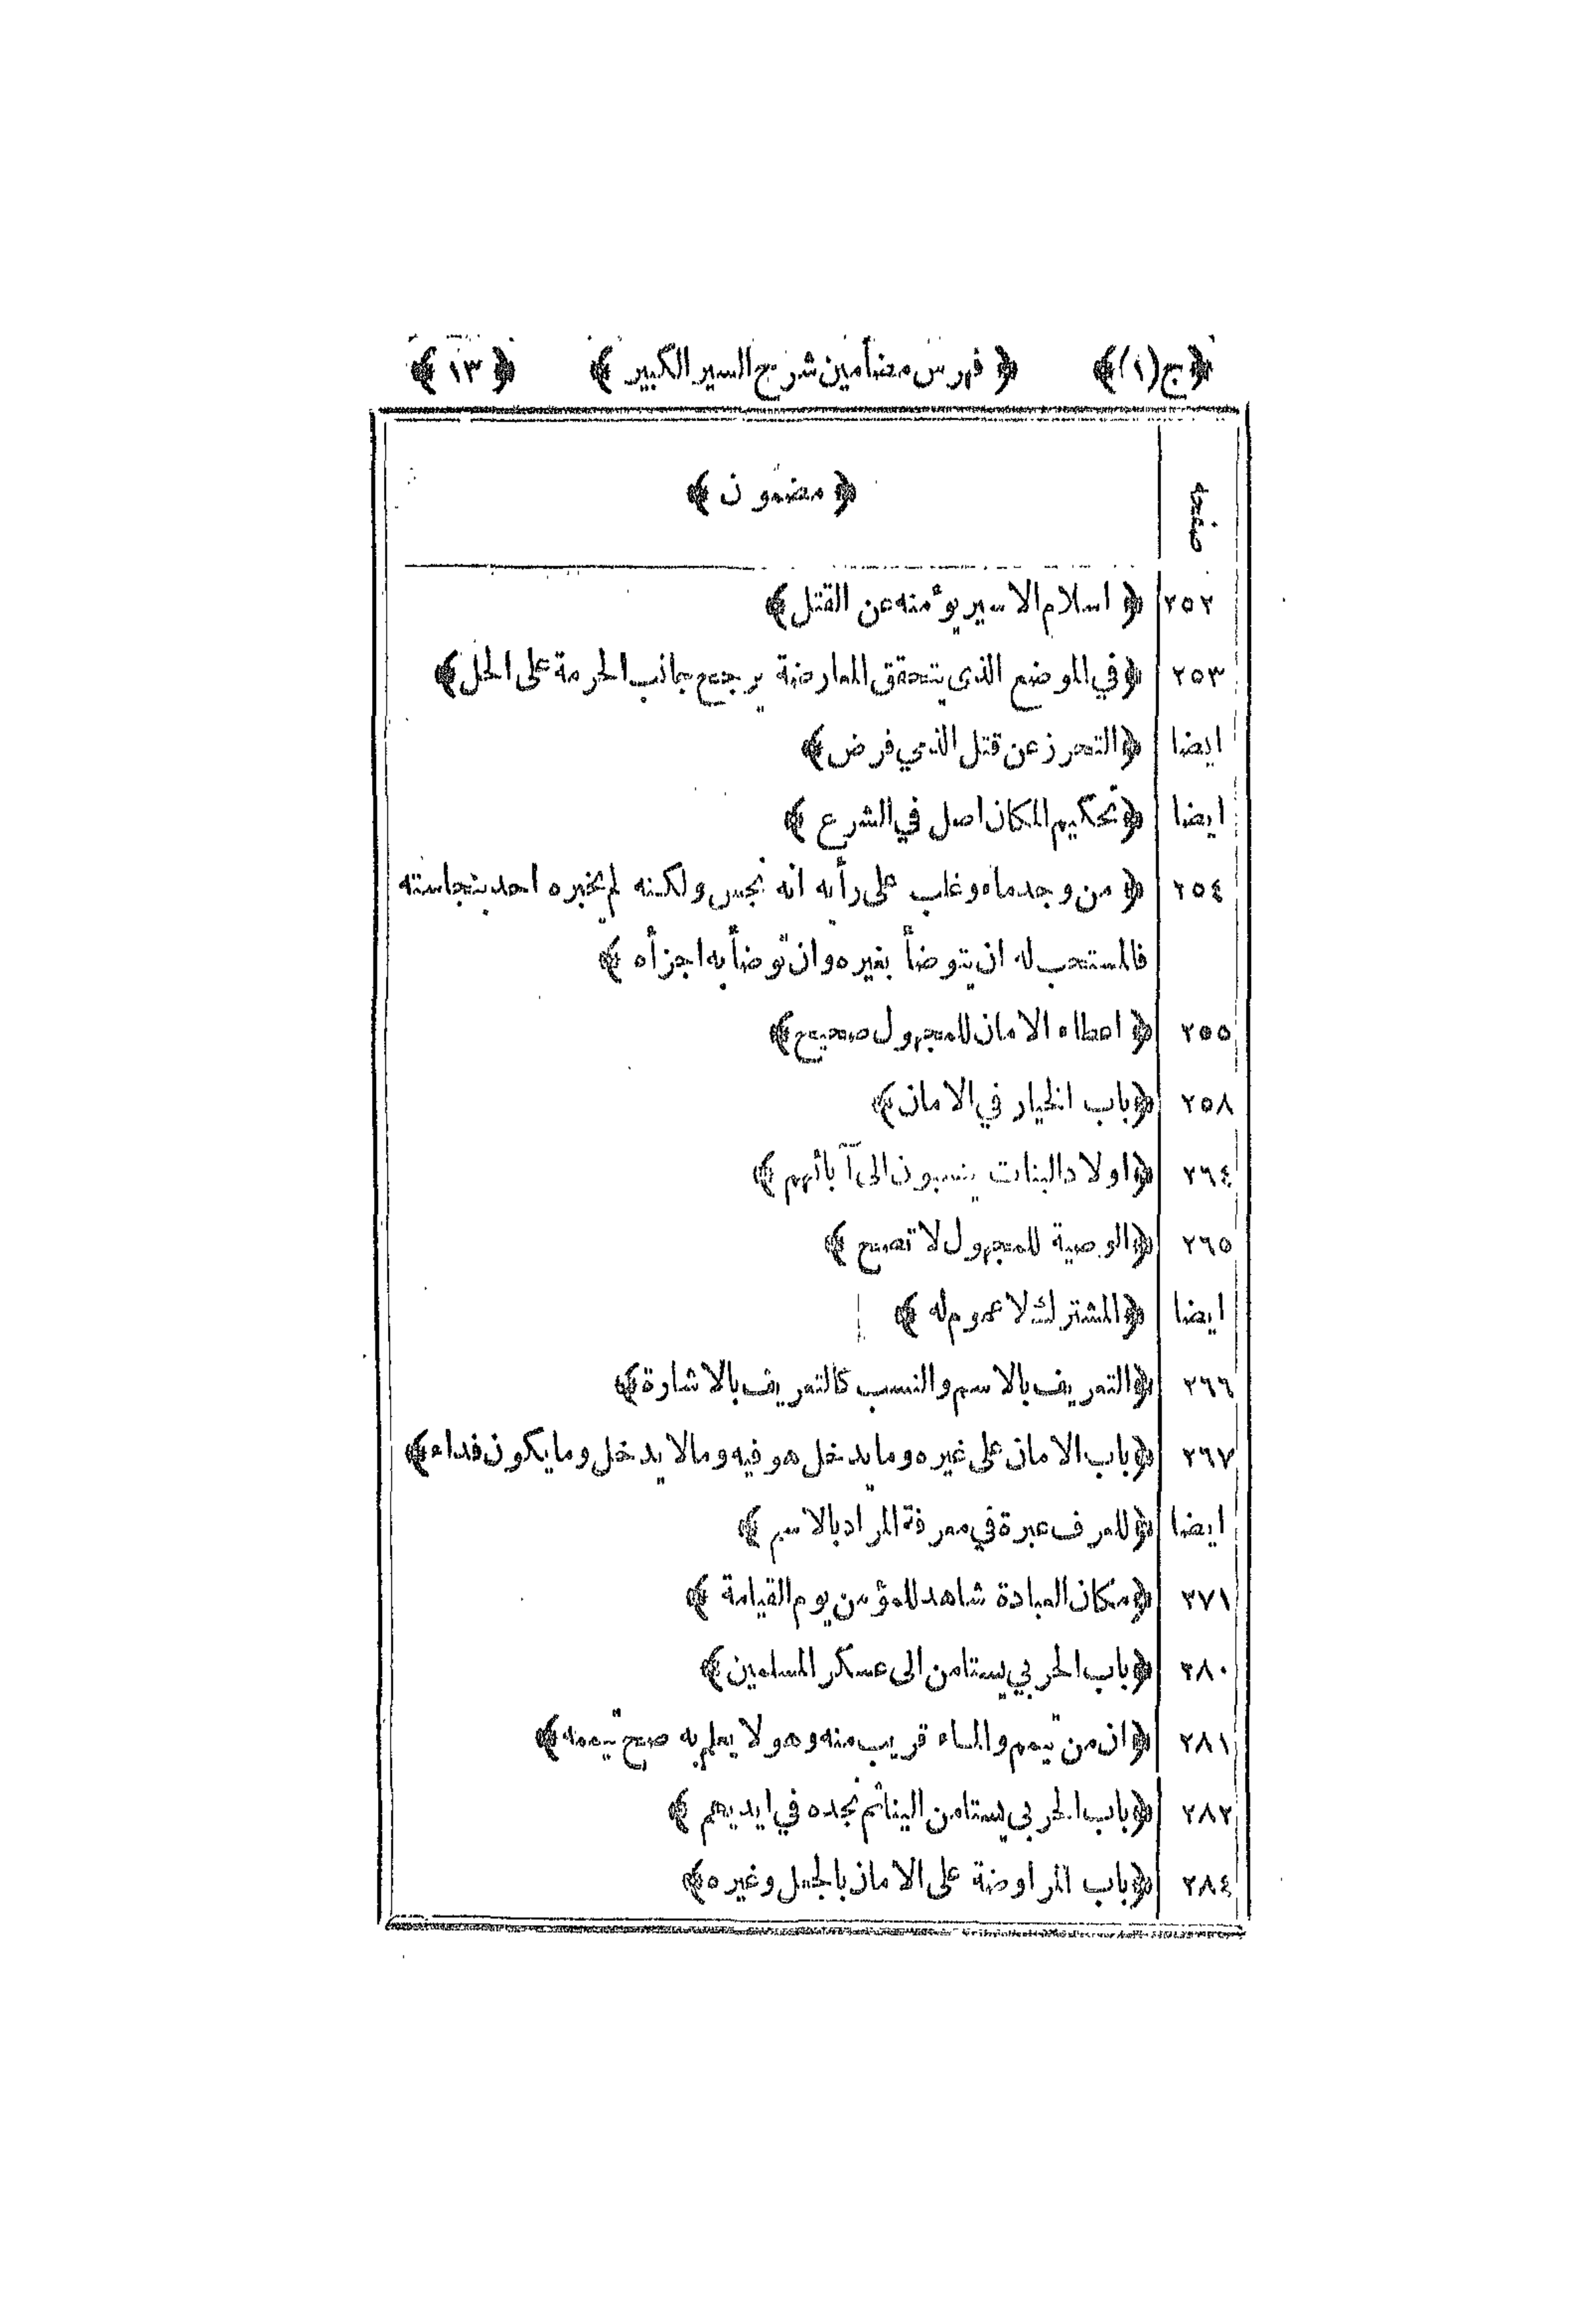 ﴿ج(١)﴾ ﴿ فهرس مضامين شرح السير الكبير ﴾ ﴿ ١٣ ﴾
صفحه ﴿ مضمون ﴾
٢٥٢ ﴿ اسلام الاسير يؤمنه عن القتل ﴾
٢٥٣ ﴿ في الموضع الذي يتحقق المعارضة يرجح جانب الحرمة على الحل ﴾
ايضا ﴿ التحرز عن قتل الذمي فرض ﴾
ايضا ﴿ تحكيم المكان اصل في الشرع ﴾
٢٥٤ ﴿ من وجد ماء وغلب على رأيه انه نجس ولكنه لم يخبره احد بنجاسته
فالمستحب له ان يتوضأ بغيره وان توضأ به اجزأه ﴾
٢٥٥ ﴿ اعطاء الامان للمجهول صحيح ﴾
٢٥٨ ﴿ باب الخيار في الامان ﴾
٢٦٤ ﴿ اولاد البنات ينسبون الى آبائهم ﴾
٢٦٥ ﴿ الوصية للمجهول لا تصح ﴾
ايضا ﴿ المشترك لا عموم له ﴾
٢٦٦ ﴿ التعريف بالاسم والنسب كالتعريف بالاشارة ﴾
٢٦٧ ﴿ باب الامان على غيره وما يدخل هو فيه وما لا يدخل وما يكون فداء ﴾
ايضا ﴿ للعرف عبرة في معرفة المراد بالاسم ﴾
٢٧١ ﴿ مكان العبادة شاهد للمؤمن يوم القيامة ﴾
٢٨٠ ﴿ باب الحربي يستامن الى عسكر المسلمين ﴾
٢٨١ ﴿ ان من تيمم والماء قريب منه وهو لا يعلم به صح تيممه ﴾
٢٨٢ ﴿ باب الحربي يستامن الينا ثم نجده في ايديهم ﴾
٢٨٤ ﴿ باب المراوضة على الامان بالجعل وغيره ﴾